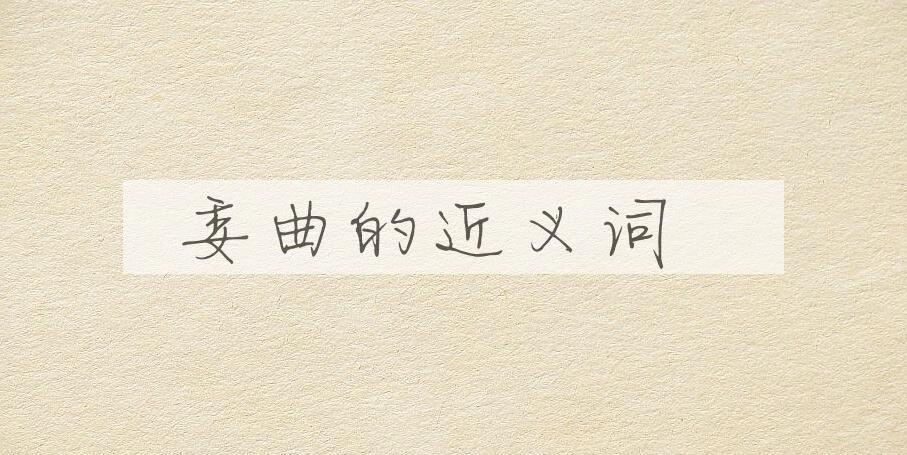 委曲的近义词